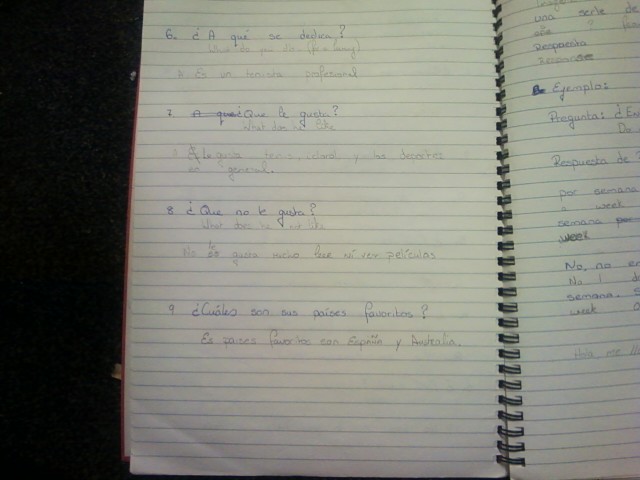 6. ¿A qué se dedica?
What do you do (for a living)
Es un tenista profesional
7 A que ¿Que le gusta?
What does he like
le gusta tenis, claro! y los deportes
en general.
8 ¿Que no te gusta?
What does he not like
No le gusta mucho leer ni ver películas
9 ¿Cuáles son sus países favoritos?
Es países favoritos son España y Australia.
una serie de
Respuesta
Ejemplo:
Pregunta: ¿
Respuesta de
por semana
a week
semana
week
No, no
No, I
semana.
week